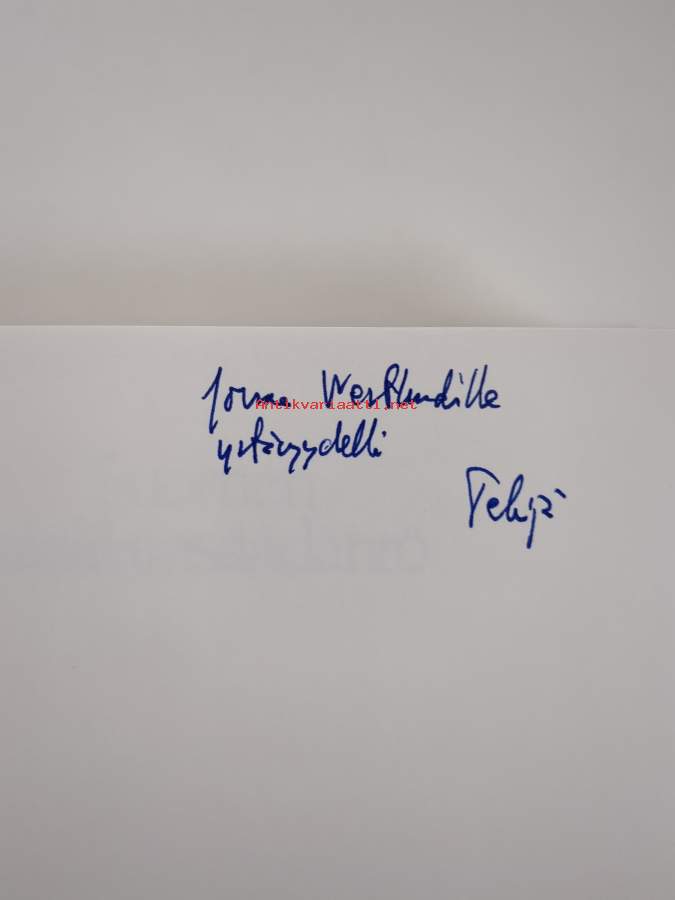 Jorma Westlundille
Antikvariaatti.net
ystävyydellä
Tekijä